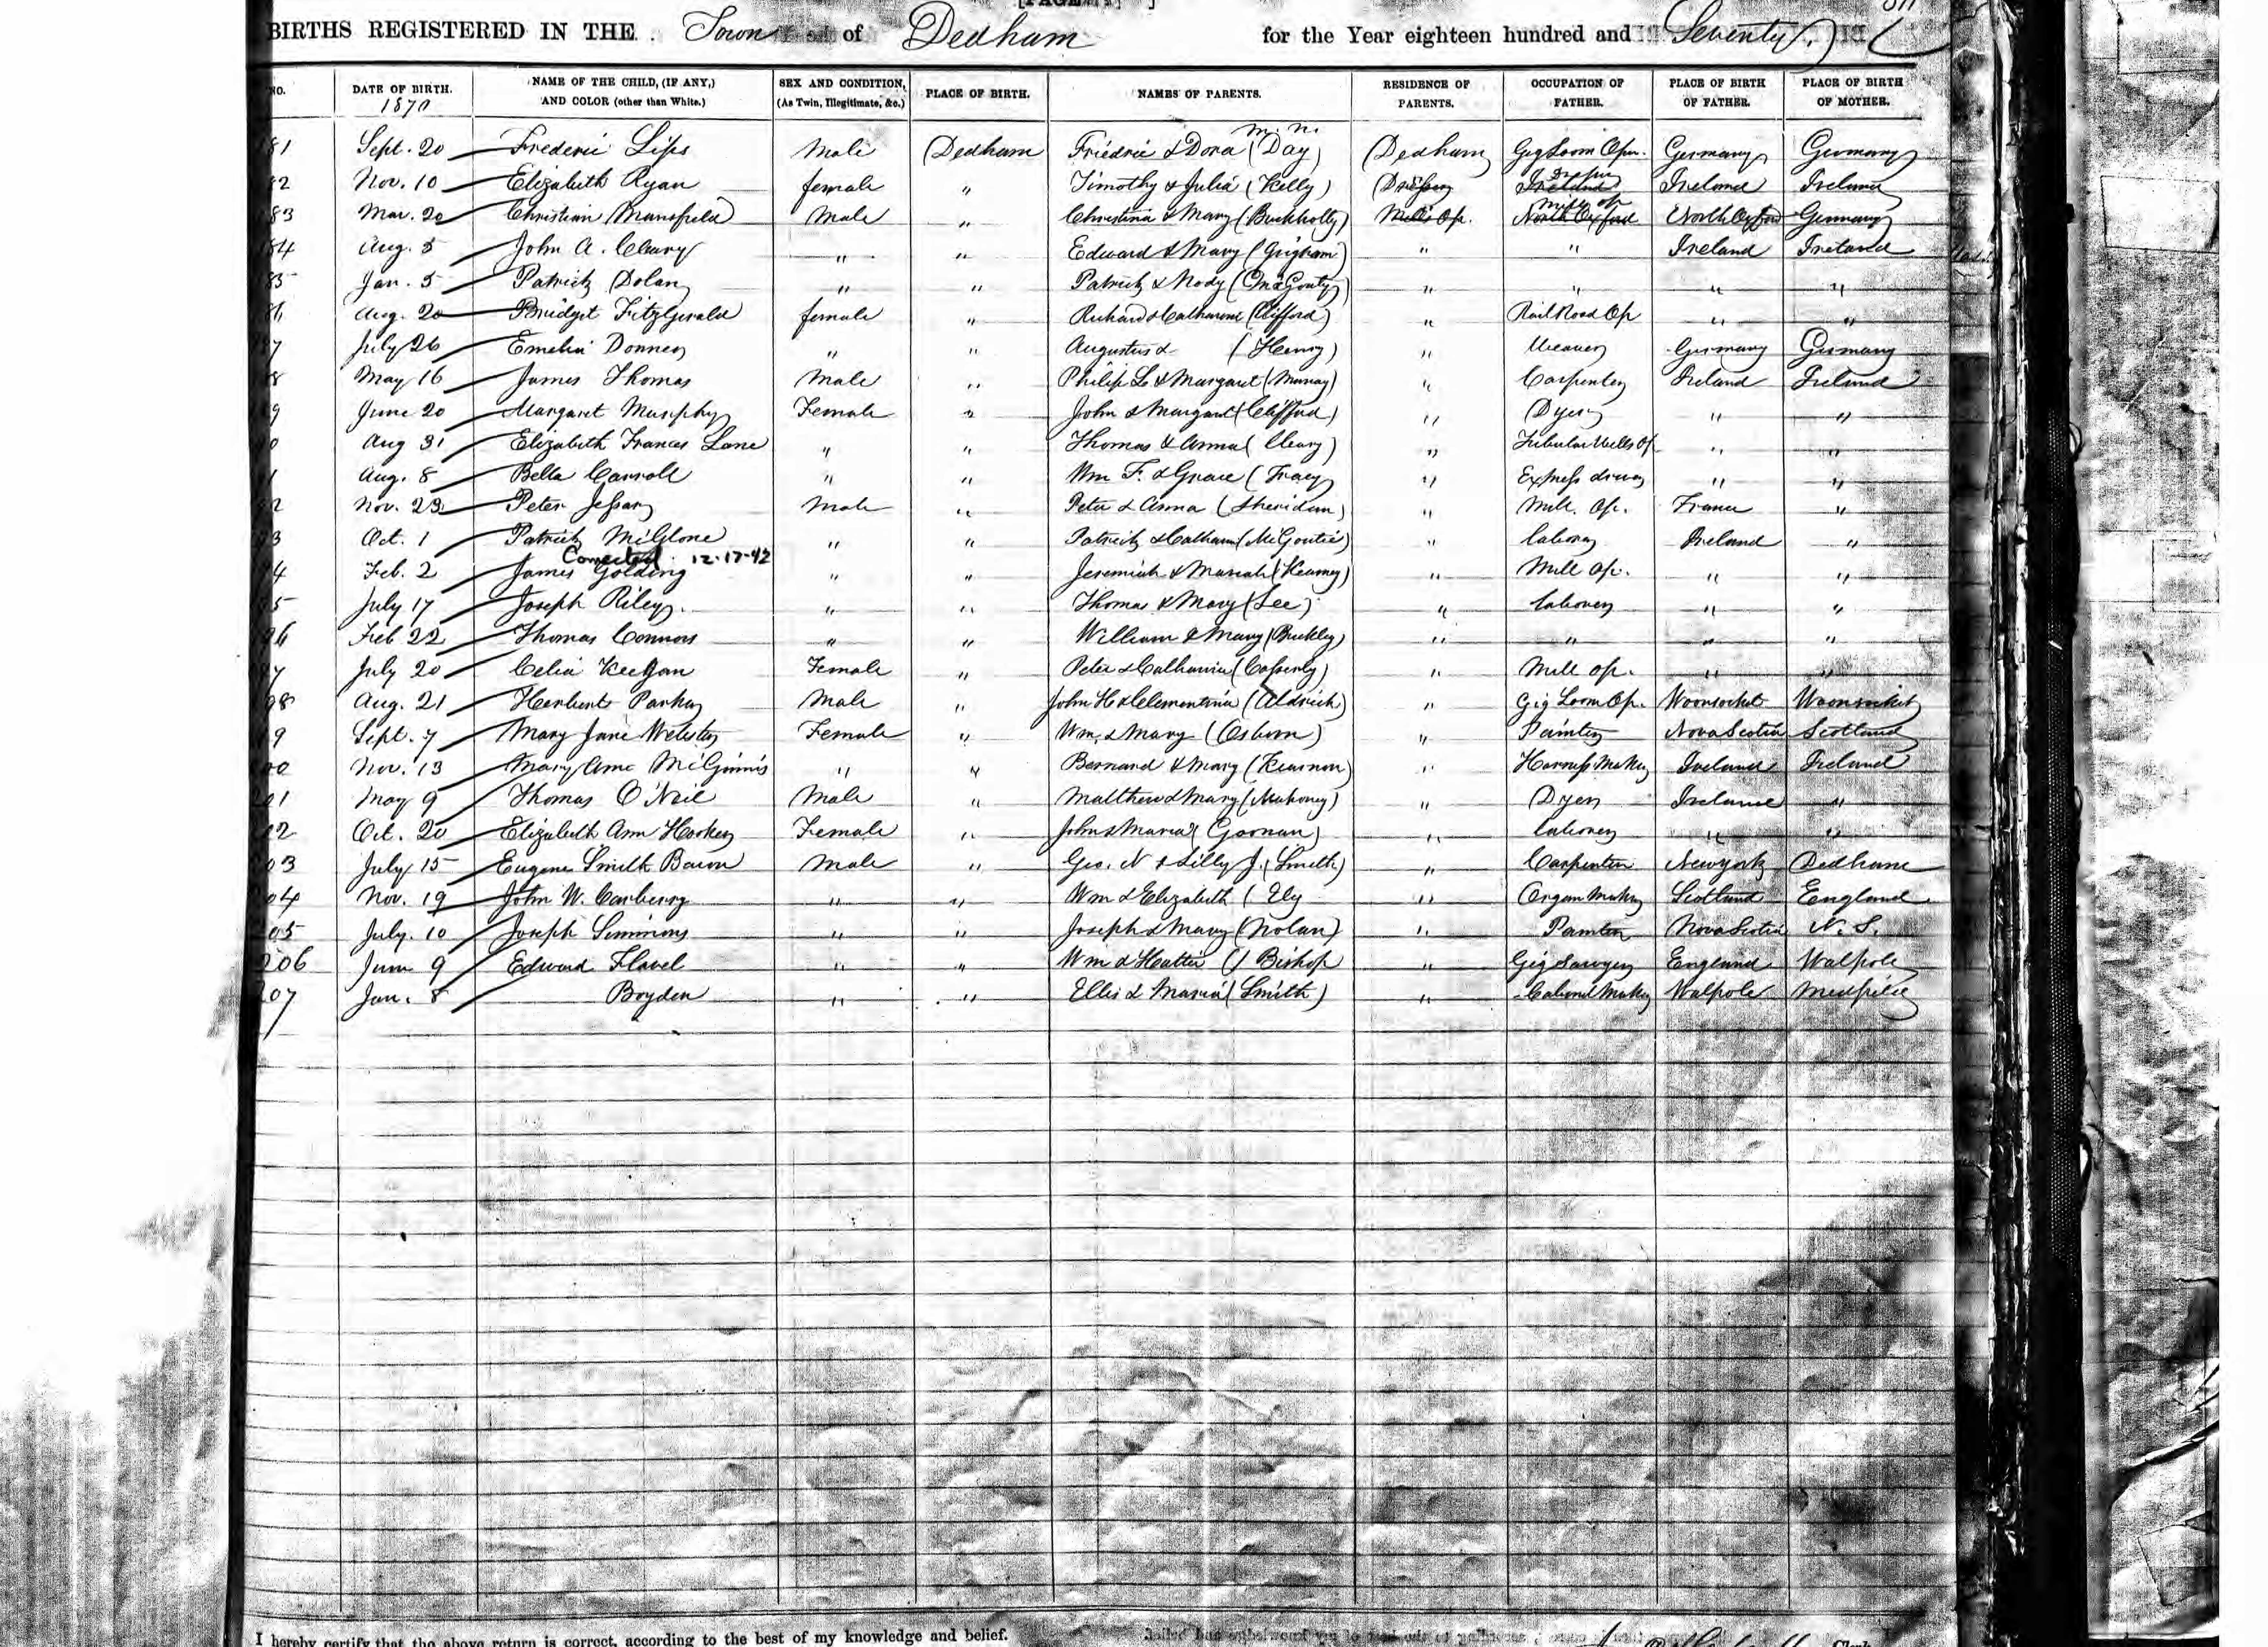 BIRTHS REGISTERED IN THE Town of Dedham for the Year eighteen hundred and Seventy.
NO. DATE OF BIRTH. 1870 NAME OF THE CHILD, (IF ANY,) AND COLOR (other than White.) SEX AND CONDITION, (As Twin, Illegitimate, &c.) PLACE OF BIRTH. NAMES OF PARENTS. RESIDENCE OF PARENTS. OCCUPATION OF FATHER. PLACE OF BIRTH OF FATHER. PLACE OF BIRTH OF MOTHER.
m. n.
81 Sept. 20 Frederic Lips Male Dedham Friedric & Dora (Day) Dedham Gig Loom Oper. Germany Germany
82 Nov. 10 Elizabeth Ryan female " Timothy & Julia (Kelly) Ireland Ireland Ireland
83 Mar. 20 Christian Mansfield Male " Christina & Mary (Buckholtz) Mills Op. Mill op North Oxford North Oxford Germany
84 Aug. 5 John A. Cleary " " Edward & Mary " " Ireland Ireland
85 Jan. 5 Patrick Dolan " " Patrick & Nody " " " "
86 Aug. 20 Bridget FitzGerald female " Richard & Catharine (Clifford) " Rail Road Op " "
87 July 26 Emelia Donner " " Augustus & (Henry) " Weaver Germany Germany
8 May 16 James Thomas Male " Philip L. & Margaret (Murray) " Carpenter Ireland Ireland
9 June 20 Margaret Murphy Female " John & Margaret (Clifford) " Dyer " "
0 Aug 31 Elizabeth Frances Lane " " Thomas & Anna (Cleary) " Tubular Wells Op. " "
1 Aug. 8 Bella Carroll " " Wm F. & Grace (Tracy " Express driver " "
2 Nov. 23 Peter Male " Peter & Anna (Sheridan) " Mill. Op. France "
3 Oct. 1 Patrick McGlone " " Patrick & Catharine (McGontie) " Laborer Ireland "
Corrected 12-17-42
4 Feb. 2 James Golding " " Jeremiah & Mariah (Kearney) " Mill Op. " "
95 July 17 Joseph Riley. " " Thomas & Mary (Lee) " Laborer " "
96 Feb 22 Thomas Connors " " William & Mary (Buckley) " " " "
97 July 20 Celia Keegan Female " Peter & Catharine (Casserly) " Mill Op. " "
98 Aug. 21 Herbert Parker Male " John H & Clementina (Aldrich) " Gig Loom Op. Woonsocket Woonsocket
99 Sept. 7 Mary Jane Webster Female " Wm. & Mary (Osborn) " Painter Nova Scotia Scotland
200 Nov. 13 Mary Ann McGinnis " " Bernard & Mary (Kearnon) " Harness Maker Ireland Ireland
201 May 9 Thomas O'Neil Male " Matthew & Mary (Mahoney) " Dyer Ireland "
202 Oct. 20 Elizabeth Ann Female " John & Maria (Goonan) " Laborer " "
203 July 15 Eugene Smith Bacon Male " Geo. N & Lilly J. (Smith) " Carpenter New York Dedham
204 Nov. 19 John W. Carberry " " Wm & Elizabeth (Ely " Organ Maker Scotland England
205 July. 10 Joseph Simmons " " Joseph & Mary (Nolan) " Painter Nova Scotia N. S.
206 June 9 Edward Flavel " " Wm & Hattie () Bishop " Gig Sawyer England Walpole
207 Jan. 8 Boyden " " Ellis & Maria (Smith) " Cabinet Maker Walpole Medfield
I hereby certify that the above return is correct, according to the best of my knowledge and belief.
Clerk